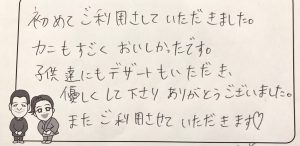 初めてご利用させていただきました。
カニもすごくおいしかったです。
子供達にもデザートもいただき、
優しくして下さりありがとうございました。
またご利用させていただきます♡